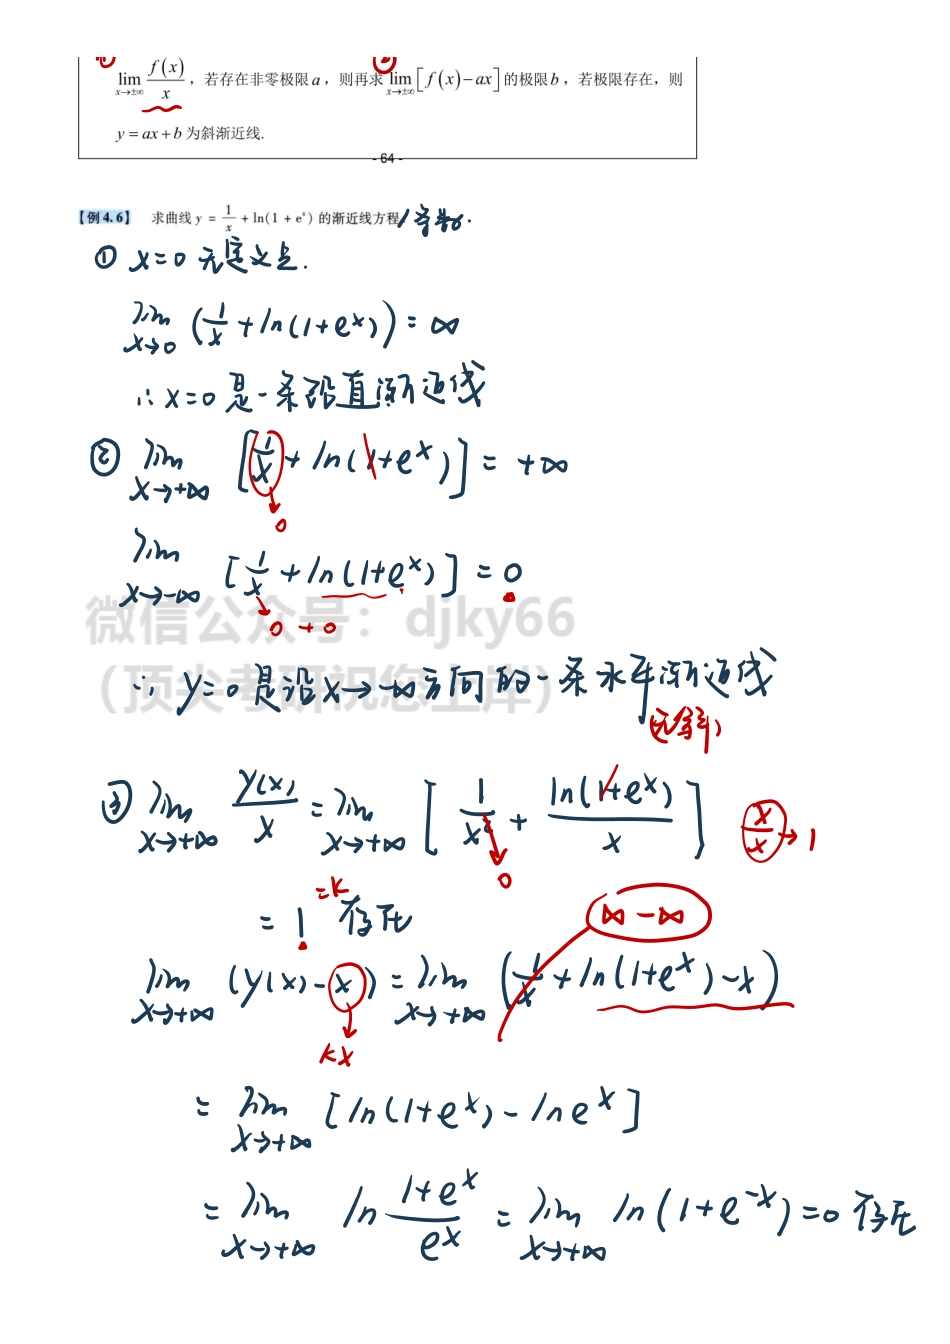 ① lim x→±∞ f(x)/x ，若存在非零极限 a ，则再求 ② lim x→±∞ [f(x)−ax] 的极限 b ，若极限存在，则
y = ax + b 为斜渐近线.
- 64 -
【例4.6】 求曲线 y = 1/x + ln(1 + eˣ) 的渐近线方程
① x=0 无定义点.
lim x→0 (1/x + ln(1+eˣ)) = ∞
∴ x=0 是一条铅直渐近线
② lim x→+∞ [1/x + ln(1+eˣ)] = +∞
0
lim x→-∞ [1/x + ln(1+eˣ)] = 0
微信公众号：djky66
0 + 0
（顶尖考研祝您上岸）
∴ y=0 是沿 x→-∞ 方向的一条水平渐近线
(无斜)
③ lim x→+∞ y(x)/x = lim x→+∞ [1/x² + ln(1+eˣ)/x] x/x → 1
0
= 1 =k 存在
∞ - ∞
lim x→+∞ (y(x) - x) = lim x→+∞ (1/x + ln(1+eˣ) - x)
kx
= lim x→+∞ [ln(1+eˣ) - ln eˣ]
= lim x→+∞ ln (1+eˣ)/eˣ = lim x→+∞ ln(1+e⁻ˣ) = 0 存在